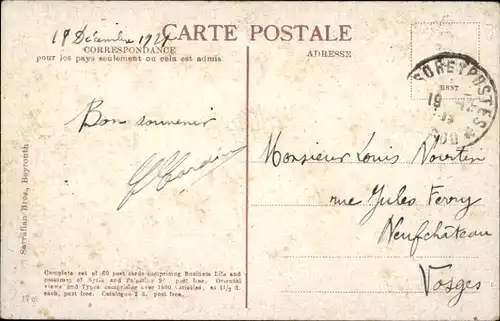 18 Décembre 1924
CARTE POSTALE
CORRESPONDANCE
pour les pays seulement ou cela est admis
ADRESSE
TRÉSOR ET POSTES
19
Bon souvenir
Monsieur Louis
rue Jules Ferry
Neufchâteau
Vosges
Sarrafian Bros, Beyrouth
Complete set of 60 post cards comprising Business Life and
customs of Syria and Palestine post free. Oriental
views and Types comprising over 1500 varieties, at 1½ d.
each, post free. Catalogue 2 d. post free.